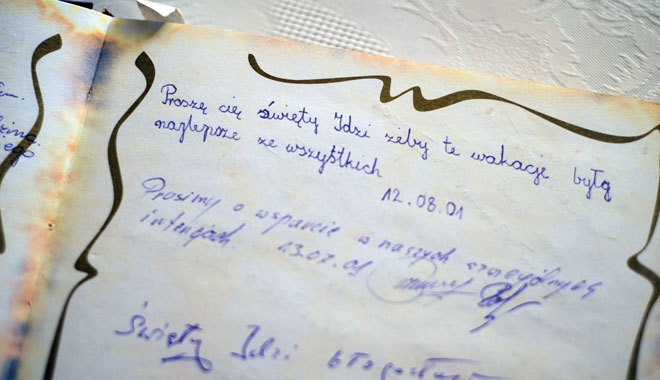 em.
Proszę cię święty Idzi żeby te wakacje byłą
najlepsze ze wszystkich
12.08.01
Prosimy o wsparcie o naszych szczególnych
intencjach 13.07.01
Święty Idzi